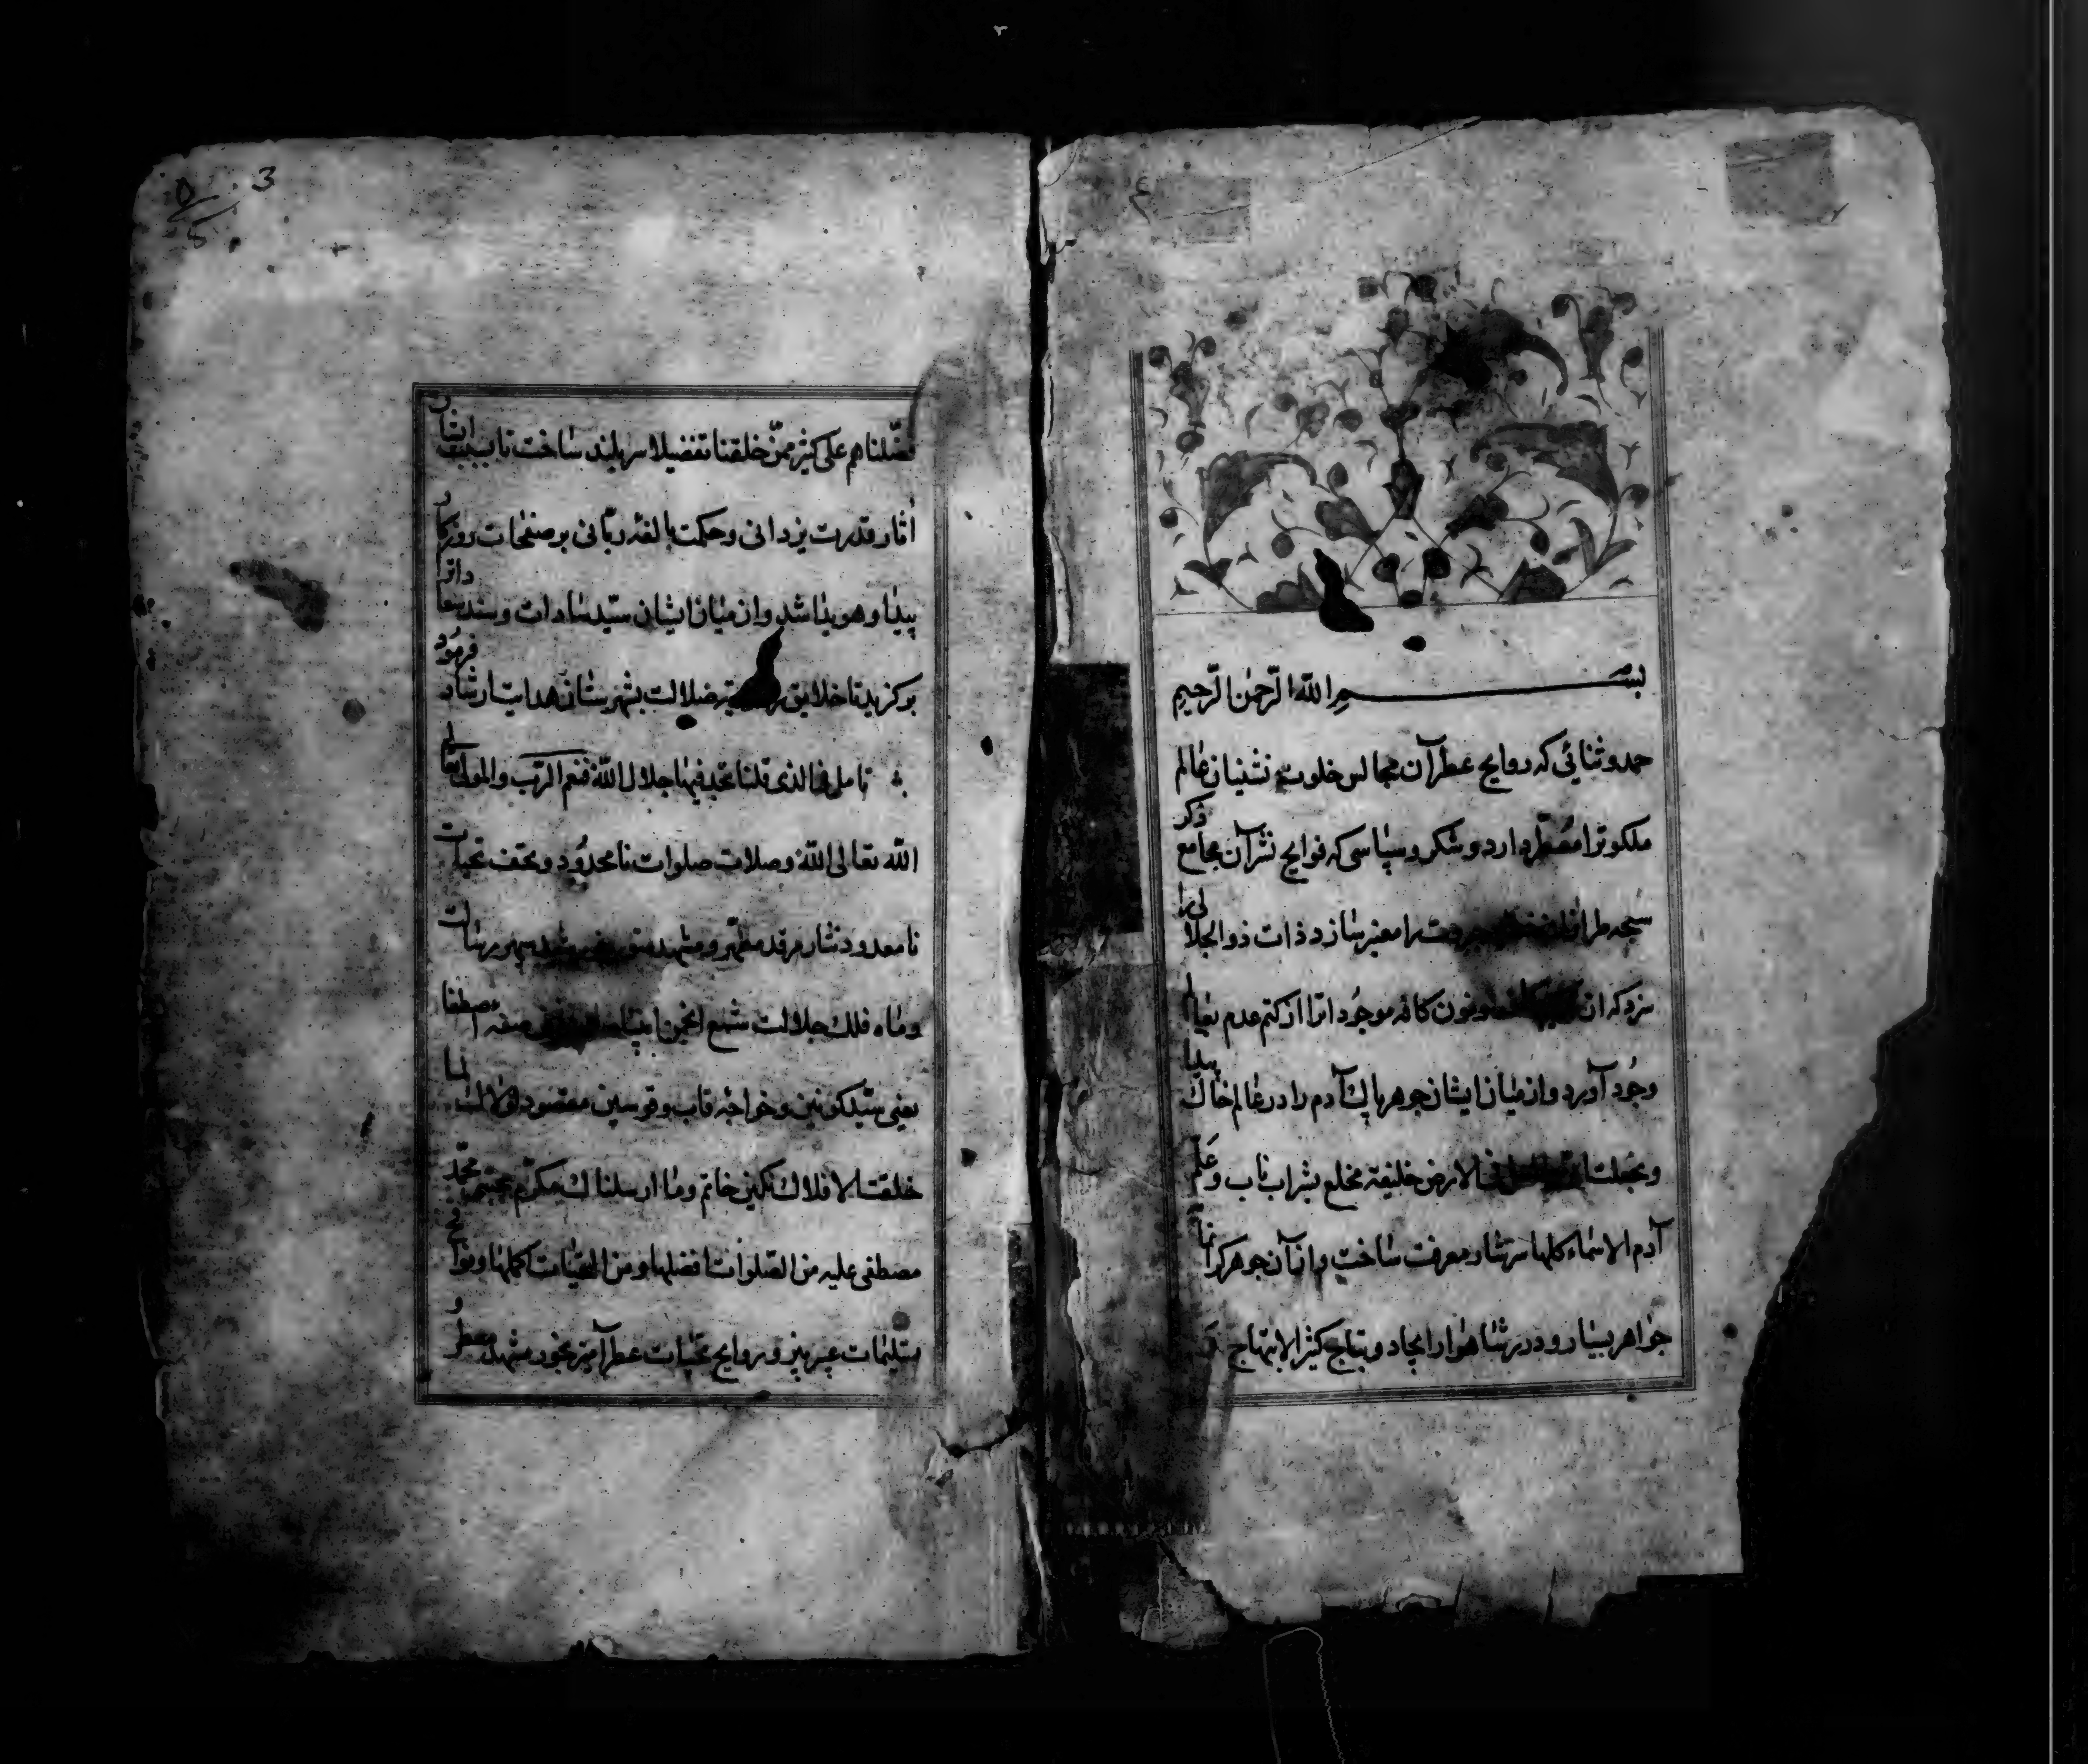 بسم الله الرّحمن الرّحیم
حمد و ثنائی که روایح عطر آن مجالس خلوت نشینان عالم
ملکوترا معطّر دارد و شکر و سپاسی که فوایح نشر آن مجامع ذکر
سبحه طرازان را معنبر سازد ذات ذو الجلالی را
سزد که از و نون کافه موجوداترا از کتم عدم
وجود آورد و از میان ایشان جوهر پاک آدم را در عالم خاک پیدا
فی الارض خلیفة مخلع بشراب ناب و عَلّم
آدم الاسماء کلها سرشار معرفت ساخت و از آن جوهر
جواهر بسیار و درر شاهوار ایجاد و بتاج کثیر الابتهاج وَ
فضّلناهم علی کثیر ممّن خلقنا تفضیلا سربلند ساخت تا
آثار قدرت یزدانی و حکمت بالغهٔ ربّانی بر صفحات روزکار
پیدا و هویدا شد و از میان ایشان سیّد سادات و سند
برکزید تا خلایق ضلالت بشهرستان هدایت ارشاد فرمود
تامل فی الذی قلنا تجد فیها جلال اللّه فنعم الربّ و المولی تعالی
اللّه تعالی اللّه و صلات صلوات نامحدود و تحف تحیات
نامعدود نثار مرقد مطهّر و مشهد سپهر رسالت
و ماه فلک جلالت شمع انجمن صفهٔ اصطفا
یعنی سیّد کونین و خواجهٔ قاب و قوسین مقصود لولاک لما
خلقت الافلاک نکین خاتم و ما ارسلناک مکرّم مجتبی محمّد
مصطفی علیه من الصّلوات افضلها و من التحیّات اکملها و فوایح
تسلیمات عبیربیز و روایح تحیّات عطرآمیز بخور مشهد معطر و
3